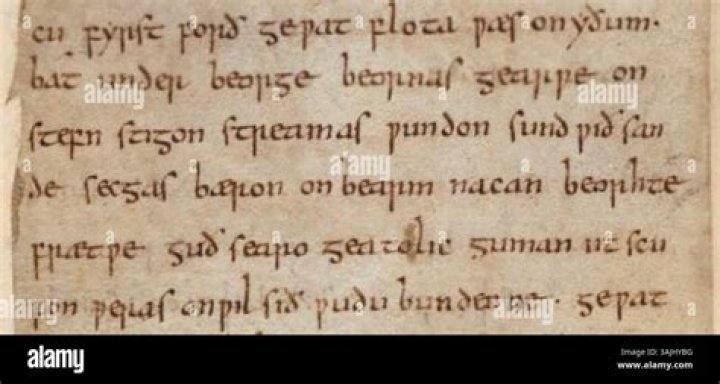 cu fyrst forð geƿat flota ƿæs on yðum·
bat under beorge beornas gearƿe on
stefn stigon streamas ƿundon sund ƿið san
de secgas bæron on bearm nacan beorhte
frætƿe guð searo geatolic guman ut scu
fon ƿeras on ƿil sið ƿudu bundenne· geƿat
alamy
alamy
alamy
alamy
alamy
alamy
Image ID: 3AJHYBG
www.alamy.com